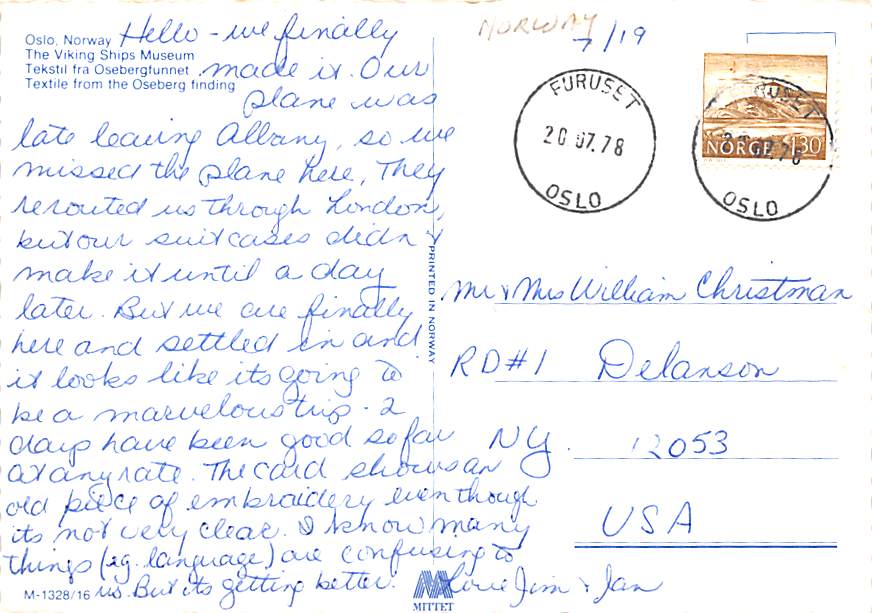 Oslo, Norway
The Viking Ships Museum
Tekstil fra Osebergfunnet
Textile from the Oseberg finding
Hello - we finally
made it. Our
plane was
late leaving Albany, so we
missed the plane here, They
rerouted us through London,
but our suitcases didn't
make it until a day
later. But we are finally
here and settled in and
it looks like its going to
be a marvelous trip. 2
days have been good so far
at any rate. The card shows an
old piece of embraidery even though
its not very clear. I know many
things (eg. language) are confusing to
us. But its getting better.
Love Jim & Jan
M-1328/16
MITTET
PRINTED IN NORWAY
NORWAY
7/19
FURUSET
20.07.78
OSLO
NORGE 130
FURUSET
20.07.78
OSLO
Mr & Mrs William Christman
RD#1 Delanson
NY. 12053
USA